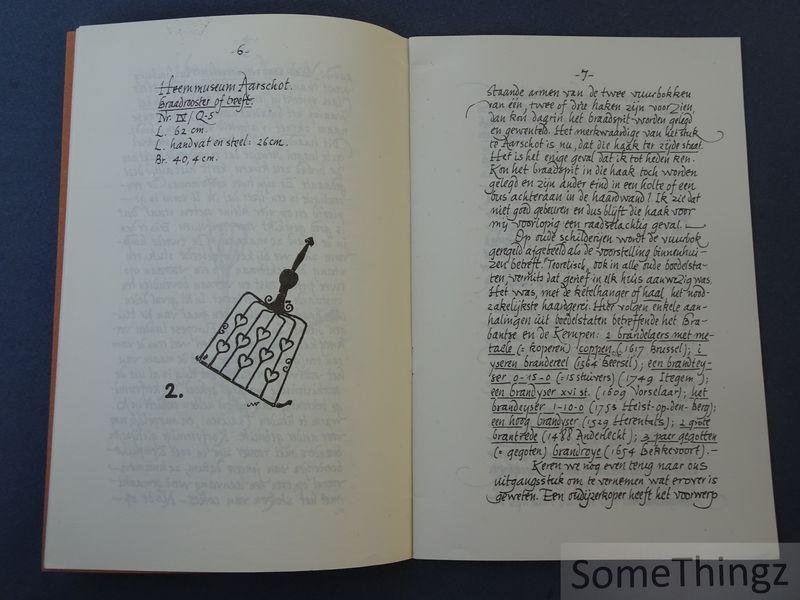 -6-
Heemmuseum Aarschot.
Braadrooster of treeft.
Nr. IV/Q-5
L. 62 cm.
L. handvat en steel: 26 cm.
Br. 40,4 cm.
2.
-7-
staande armen van de twee vuurbokken
van één, twee of drie haken zijn voorzien,
dan kon daarin het braadspit worden gelegd
en gewenteld. Het merkwaardige van het stuk
te Aarschot is nu, dat die haak ter zijde staat.
Het is het enige geval dat ik tot heden ken.
Kon het braadspit in die haak toch worden
gelegd en zijn ander eind in een holte of een
bus achteraan in de haardwand? Ik zie dat
niet goed gebeuren en dus blijft die haak voor
mij voorlopig een raadselachtig geval.
Op oude schilderijen wordt de vuurbok
geregeld afgebeeld als de voorstelling binnenhui-
zen betreft. Teoretisch, ook in alle oude boedelsta-
ten, vermits dat gerief in elk huis aanwezig was.
Het was, met de ketelhanger of haal, het nood-
zakelijkste haardgerei. Hier volgen enkele aan-
halingen uit boedelstaten betreffende het Bra-
bantse en de Kempen: 2 brandelaers met me-
taele (= koperen) coppen (1617 Brussel); i
yseren brandereel (1564 Beersel); een brandey-
ser 0-15-0 (=15 stuivers) (1749 Itegem);
een brandyser xvi st. (1609 Vorselaar); het
brandeyser 1-10-0 (1753 Heist-op-den-Berg);
een hoog brandyser (1529 Herentals); 2 grote
brantrede (1488 Anderlecht); 3 paer gegotten
(= gegoten) brandroye (1654 Bekkevoort).-
Keren we nog even terug naar ons
uitgangsstuk om te vernemen wat erover is
geweten. Een oudijzerkoper heeft het voorwerp
SomeThingz